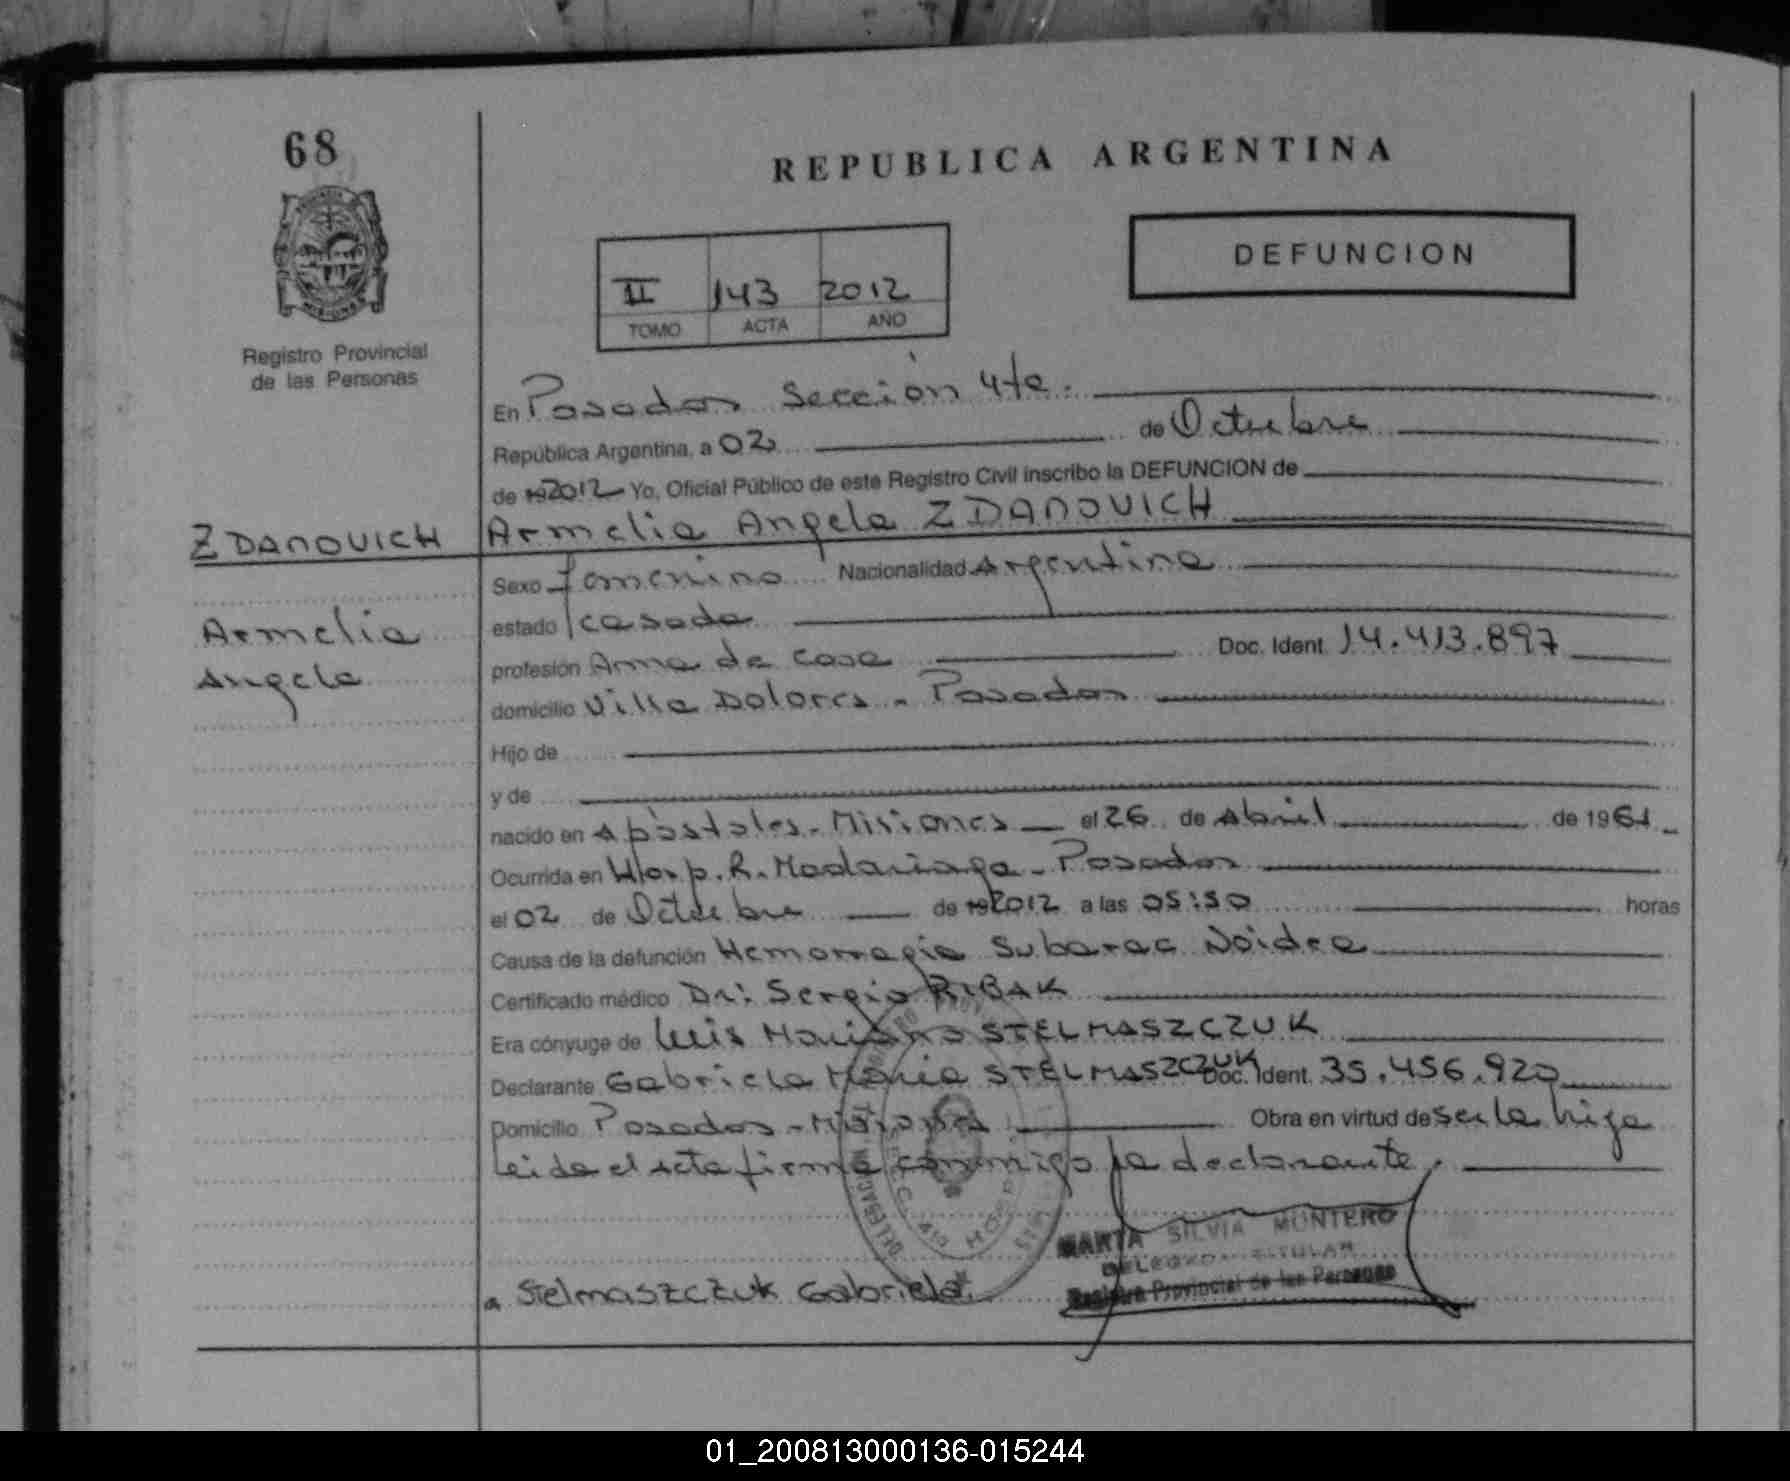 68
REPUBLICA ARGENTINA
DEFUNCION
II 143 2012
TOMO ACTA AÑO
Registro Provincial
de las Personas
En Posadas Sección 4ta.
República Argentina, a 02 de Octubre
de 192012 Yo, Oficial Público de este Registro Civil inscribo la DEFUNCION de
ZDANOVICH
Armelia Angela ZDANOVICH
Armelia
Angela
Sexo femenino Nacionalidad Argentina
estado casada
profesión Ama de casa Doc. Ident. 14.413.897
domicilio Villa Dolores - Posadas
Hijo de
y de
nacido en Apóstoles - Misiones el 26 de Abril de 1961
Ocurrida en Hosp. R. Madariaga - Posadas
el 02 de Octubre de 192012 a las 05:50 horas
Causa de la defunción Hemorragia Subarac Noidea
Certificado médico Dr: Sergio RIBAK
Era cónyuge de Luis Mariano STELMASZCZUK
Declarante Gabriela María STELMASZCZUK Doc. Ident. 35.456.920
Domicilio Posadas - Misiones Obra en virtud de ser la hija
leída el acta firma conmigo la declarante.
MARTA SILVIA MONTERO
DELEGADA TITULAR
Registro Provincial de las Personas
Stelmaszczuk Gabriela
01_200813000136-015244